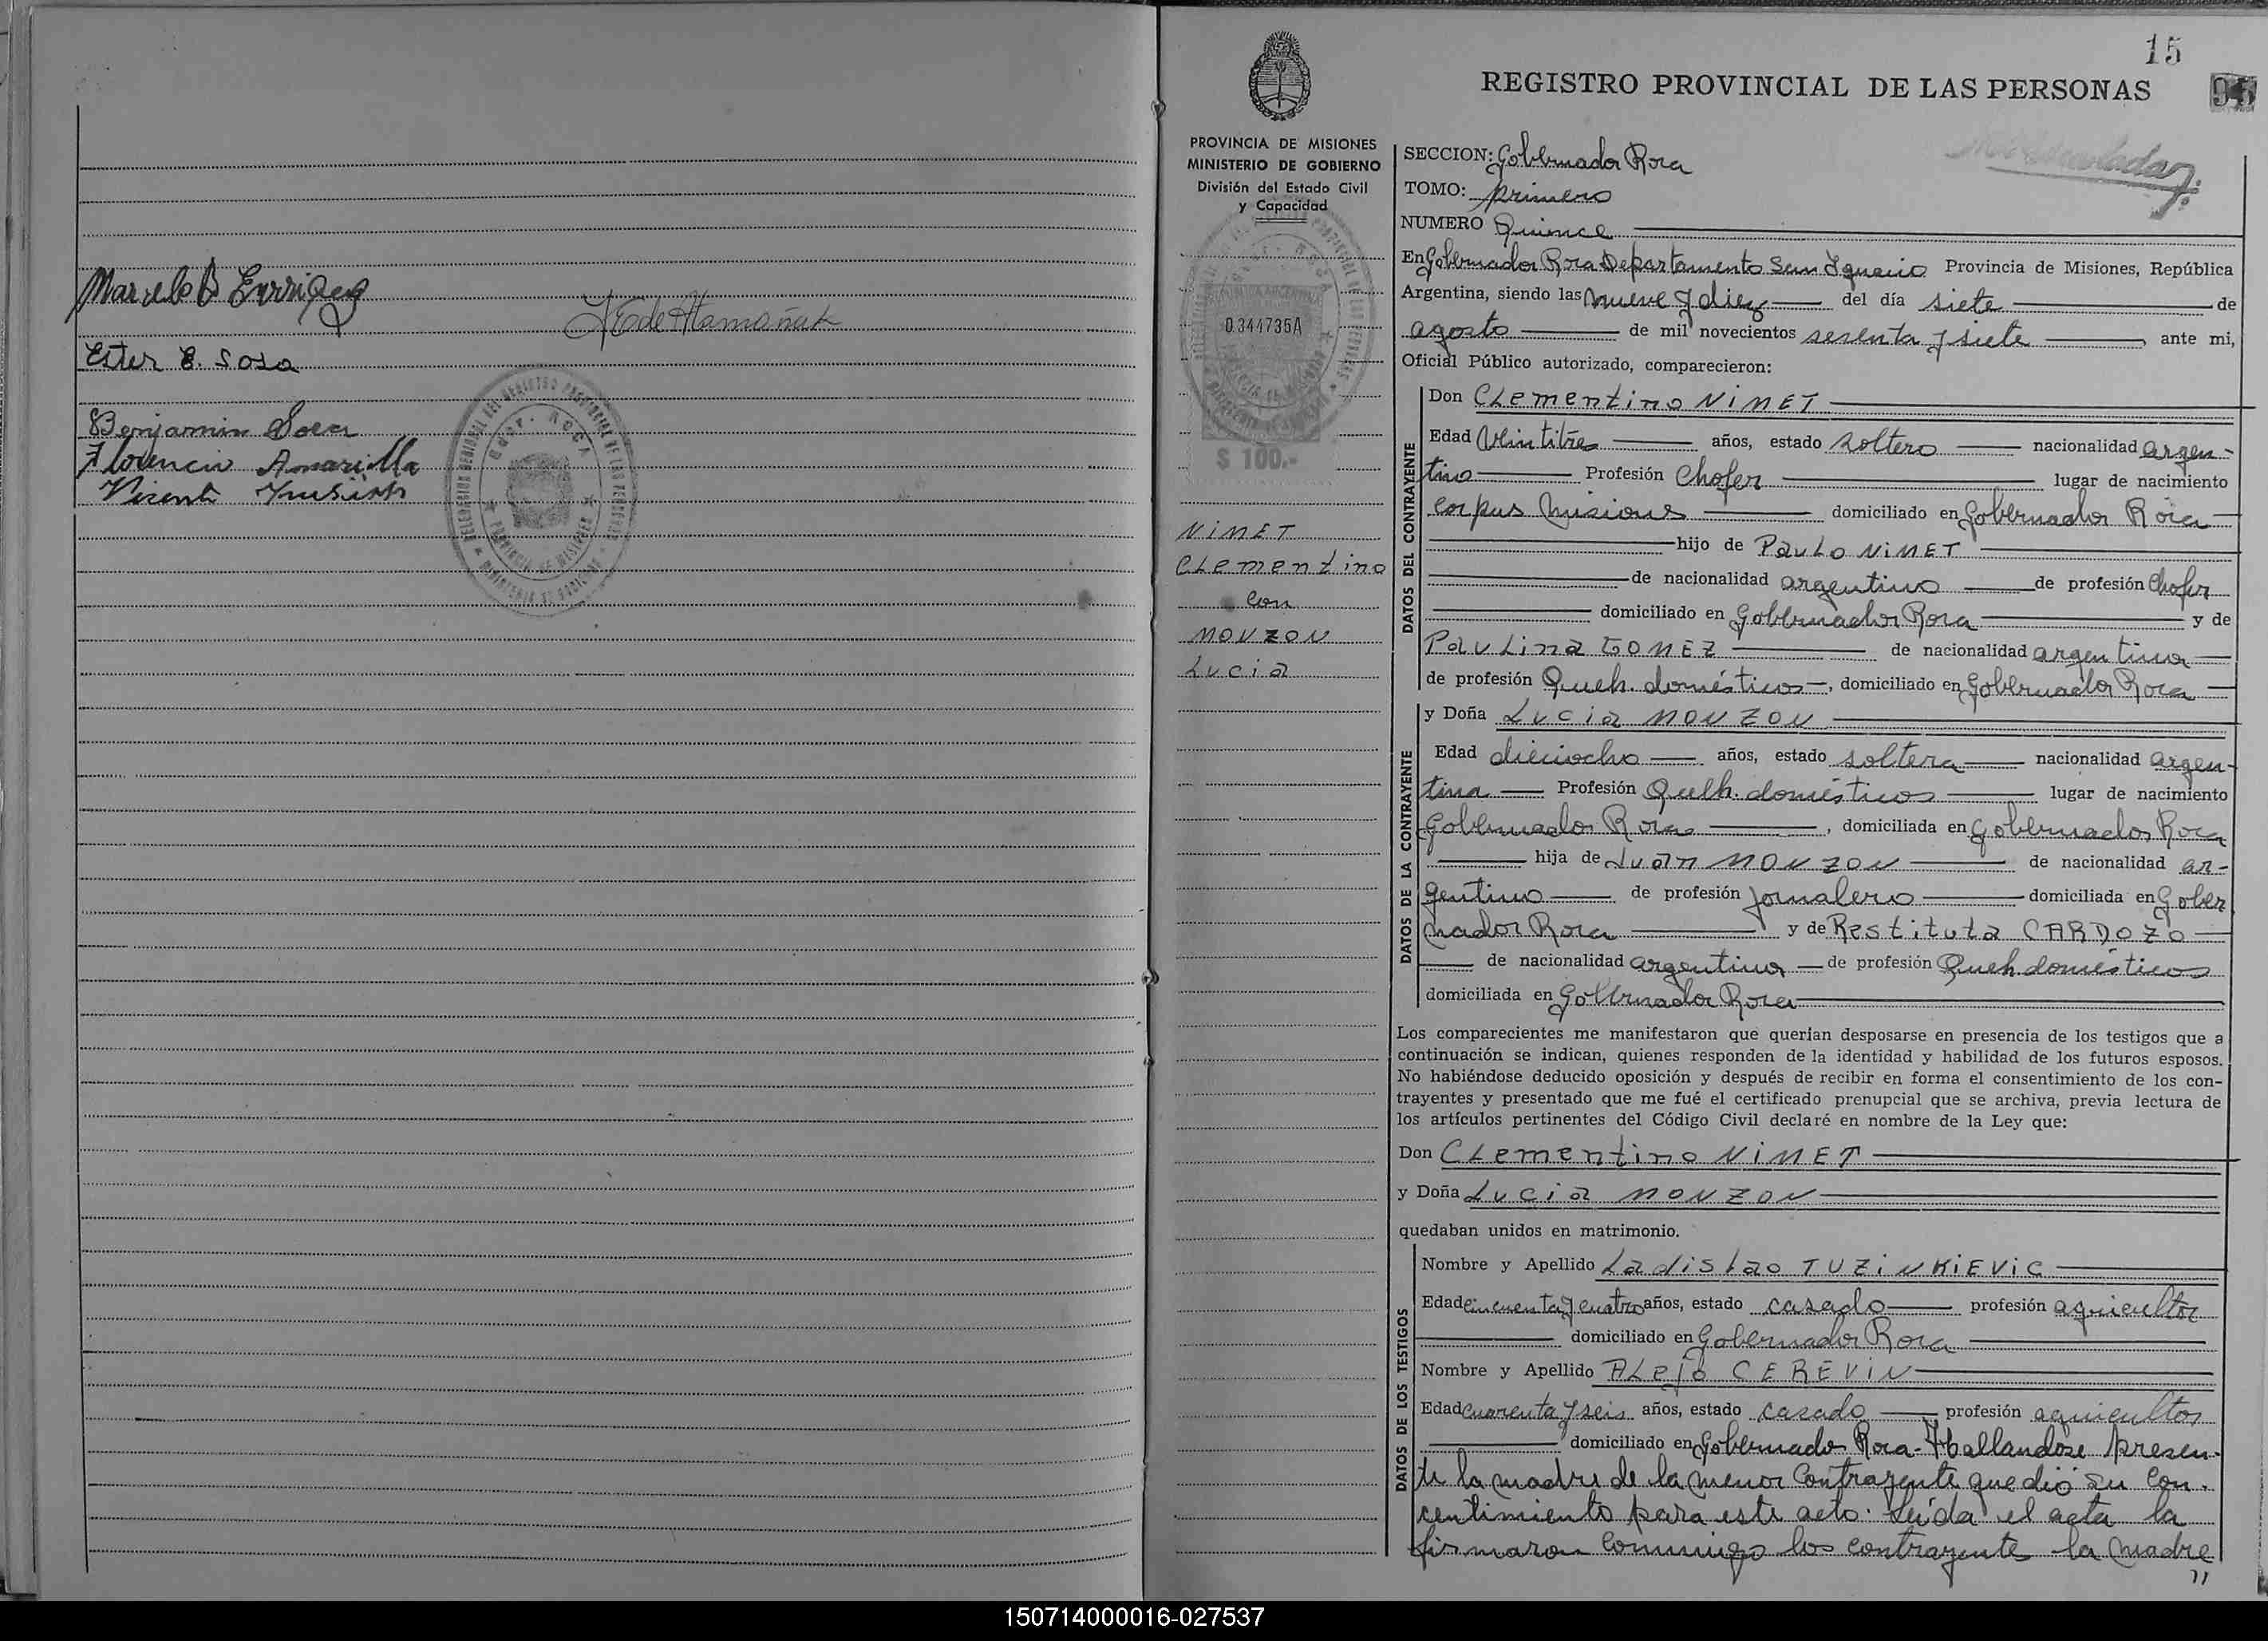 Marcelo B Enrriquez
de Atamañuk
Ester E. Sosa
Benjamin
Florencio Amarilla
Vicente
15
REGISTRO PROVINCIAL DE LAS PERSONAS
95
PROVINCIA DE MISIONES
MINISTERIO DE GOBIERNO
División del Estado Civil
y Capacidad
0344735A
$ 100.-
NiMET
CLementino
con
MONZON
Lucia
SECCION: Gobernador Roca
TOMO: primero
NUMERO Quince
En Gobernador Roca Departamento San Ignacio Provincia de Misiones, República
Argentina, siendo las nueve y diez del día siete de
agosto de mil novecientos sesenta y siete ante mi,
Oficial Público autorizado, comparecieron:
DATOS DEL CONTRAYENTE
Don CLementino NiMET
Edad Veintitres años, estado soltero nacionalidad argen-
tino Profesión Chofer lugar de nacimiento
corpus Misiones domiciliado en Gobernador Roca
hijo de PauLo NiMET
de nacionalidad argentino de profesión Chofer
domiciliado en Gobernador Roca y de
PauLina GOMEZ de nacionalidad argentina
de profesión Queh. domésticos, domiciliado en Gobernador Roca
DATOS DE LA CONTRAYENTE
y Doña Lucia MONZON
Edad dieciocho años, estado soltera nacionalidad argen-
tina Profesión Queh. domésticos lugar de nacimiento
Gobernador Roca, domiciliada en Gobernador Roca
hija de Juan MONZON de nacionalidad ar-
gentino de profesión Jornalero domiciliada en Gober
nador Roca y de Restituta CARDOZO
de nacionalidad argentina de profesión Queh domésticos
domiciliada en Gobernador Roca
Los comparecientes me manifestaron que querían desposarse en presencia de los testigos que a
continuación se indican, quienes responden de la identidad y habilidad de los futuros esposos.
No habiéndose deducido oposición y después de recibir en forma el consentimiento de los con-
trayentes y presentado que me fué el certificado prenupcial que se archiva, previa lectura de
los artículos pertinentes del Código Civil declaré en nombre de la Ley que:
Don CLementino NiMET
y Doña Lucia MONZON
quedaban unidos en matrimonio.
DATOS DE LOS TESTIGOS
Nombre y Apellido Ladislao TUZiNKiEViC
Edad cincuenta y cuatro años, estado casado profesión agricultor
domiciliado en Gobernador Roca
Nombre y Apellido ALejo CEREViN
Edad cuarenta y seis años, estado casado profesión agricultor
domiciliado en Gobernador Roca- Hallandose presen-
te la madre de la menor contrayente que dió su con-
centimiento para este acto. Leída el acta la
firmaron conmigo los contrayentes la madre
//
150714000016-027537